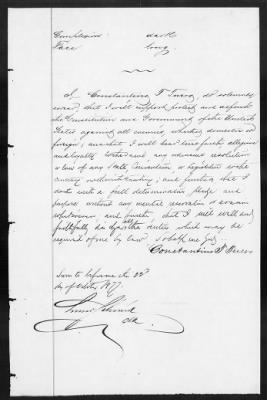 Complexion dark
Face long
I Constantine F. do solemnly
swear, that I will support protect and defend
the Constitution and Government of the United
States against all enemies, whether domestic or
foreign; and that I will bear true faith, allegiance
and loyalty to the same any ordinance resolution
or law of any State Convention, or legislature to the
contrary notwithstanding; and further that I
do this with a full determination pledge and
purpose without any mental reservation or evasion
whatsoever and further, that I will well and
faithfully perform all the duties which may be
required of me by law. So help me God
Constantine F.
Sworn to before me the 23d
day of October 1877